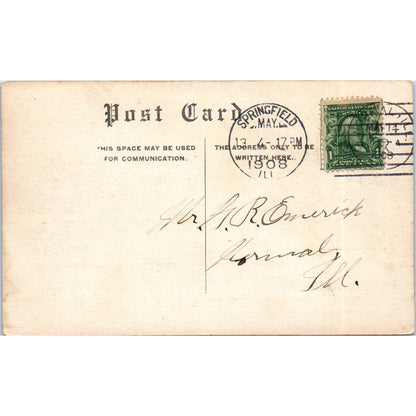 Post Card
THIS SPACE MAY BE USED
FOR COMMUNICATION.
THE ADDRESS ONLY TO BE
WRITTEN HERE.
SPRINGFIELD
MAY
13
17 PM
1908
ILL
1
Mr. G. R. Emerick
Normal,
Ill.